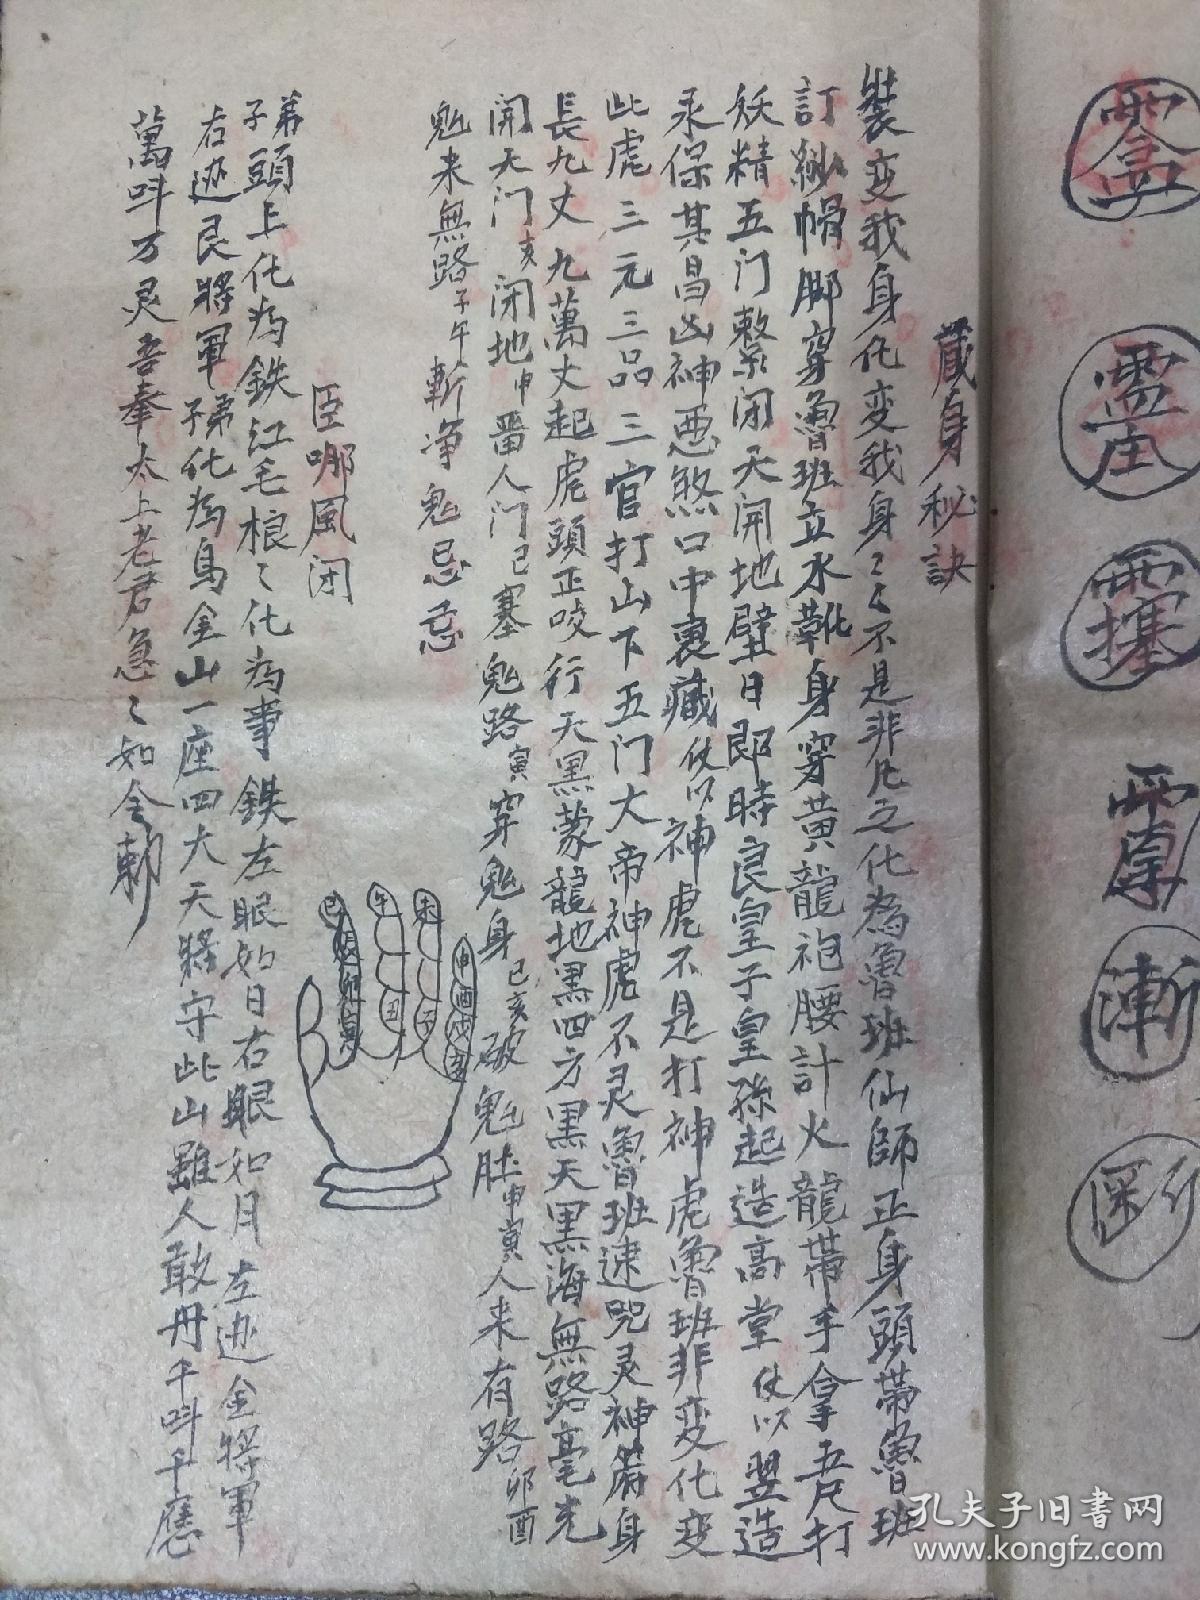 藏身秘訣
裝变我身化变我身〻〻不是非凡之化為魯班仙師正身頭带魯班
訂紗帽脚穿魯班立水靴身穿黄龍袍腰計火龍带手拿五尺打
妖精五门緊闭天開地壁日即時良皇子皇孫起造高堂仗以翌造
永保其昌凶神悪煞口中裹藏仗以神虎不是打神虎魯班非变化变
此虎三元三品三官打山下五门大帝神虎不灵魯班速咒灵神箭身
長九丈九萬丈起虎頭正咬行天黑蒙龍地黑四方黑天黑海無路毫光
開天门亥闭地申畱人门己塞鬼路寅穿鬼身已亥破鬼肚申寅人来有路卯酉
鬼来無路子午斬净鬼忌忌
臣哪風闭
弟子頭上化為鉄江毛根〻化為事鉄左眼如日右眼如月左边金将軍
右边艮將軍弟子化為烏金山一座四大天將守此山雖人敢丹千叫千應
萬呌万灵吾奉太上老君急〻如令勅
巳
午
未
申
酉
戌
亥
辰
卯
寅
丑
子
漸
孔夫子旧書网
www.kongfz.com